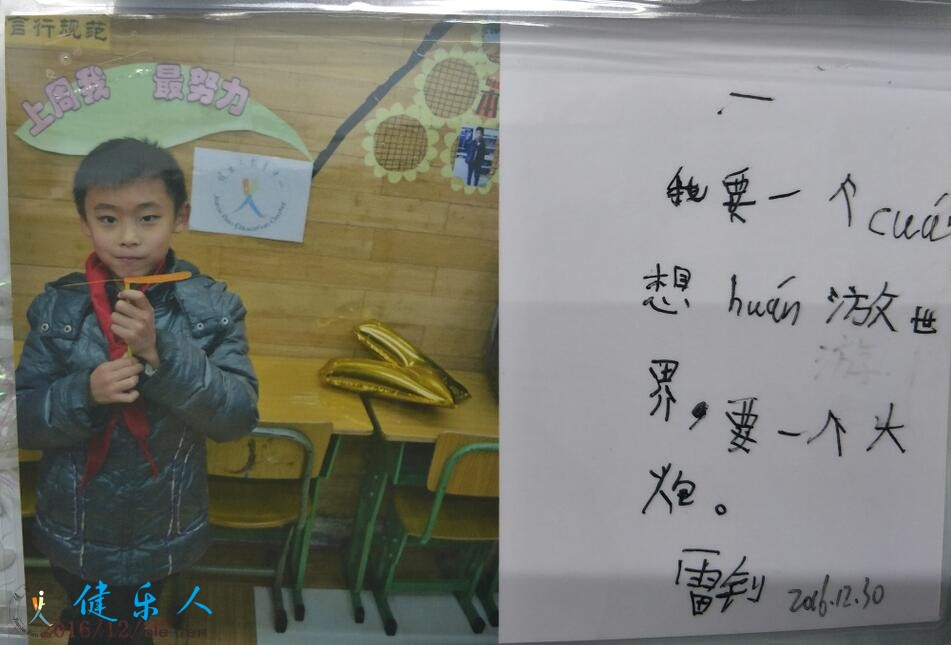 言行规范
上周我 最努力
一
我要一个cuá
想huán游世
界，要一个大
炮。
2016.12.30
健乐人
2016/12/